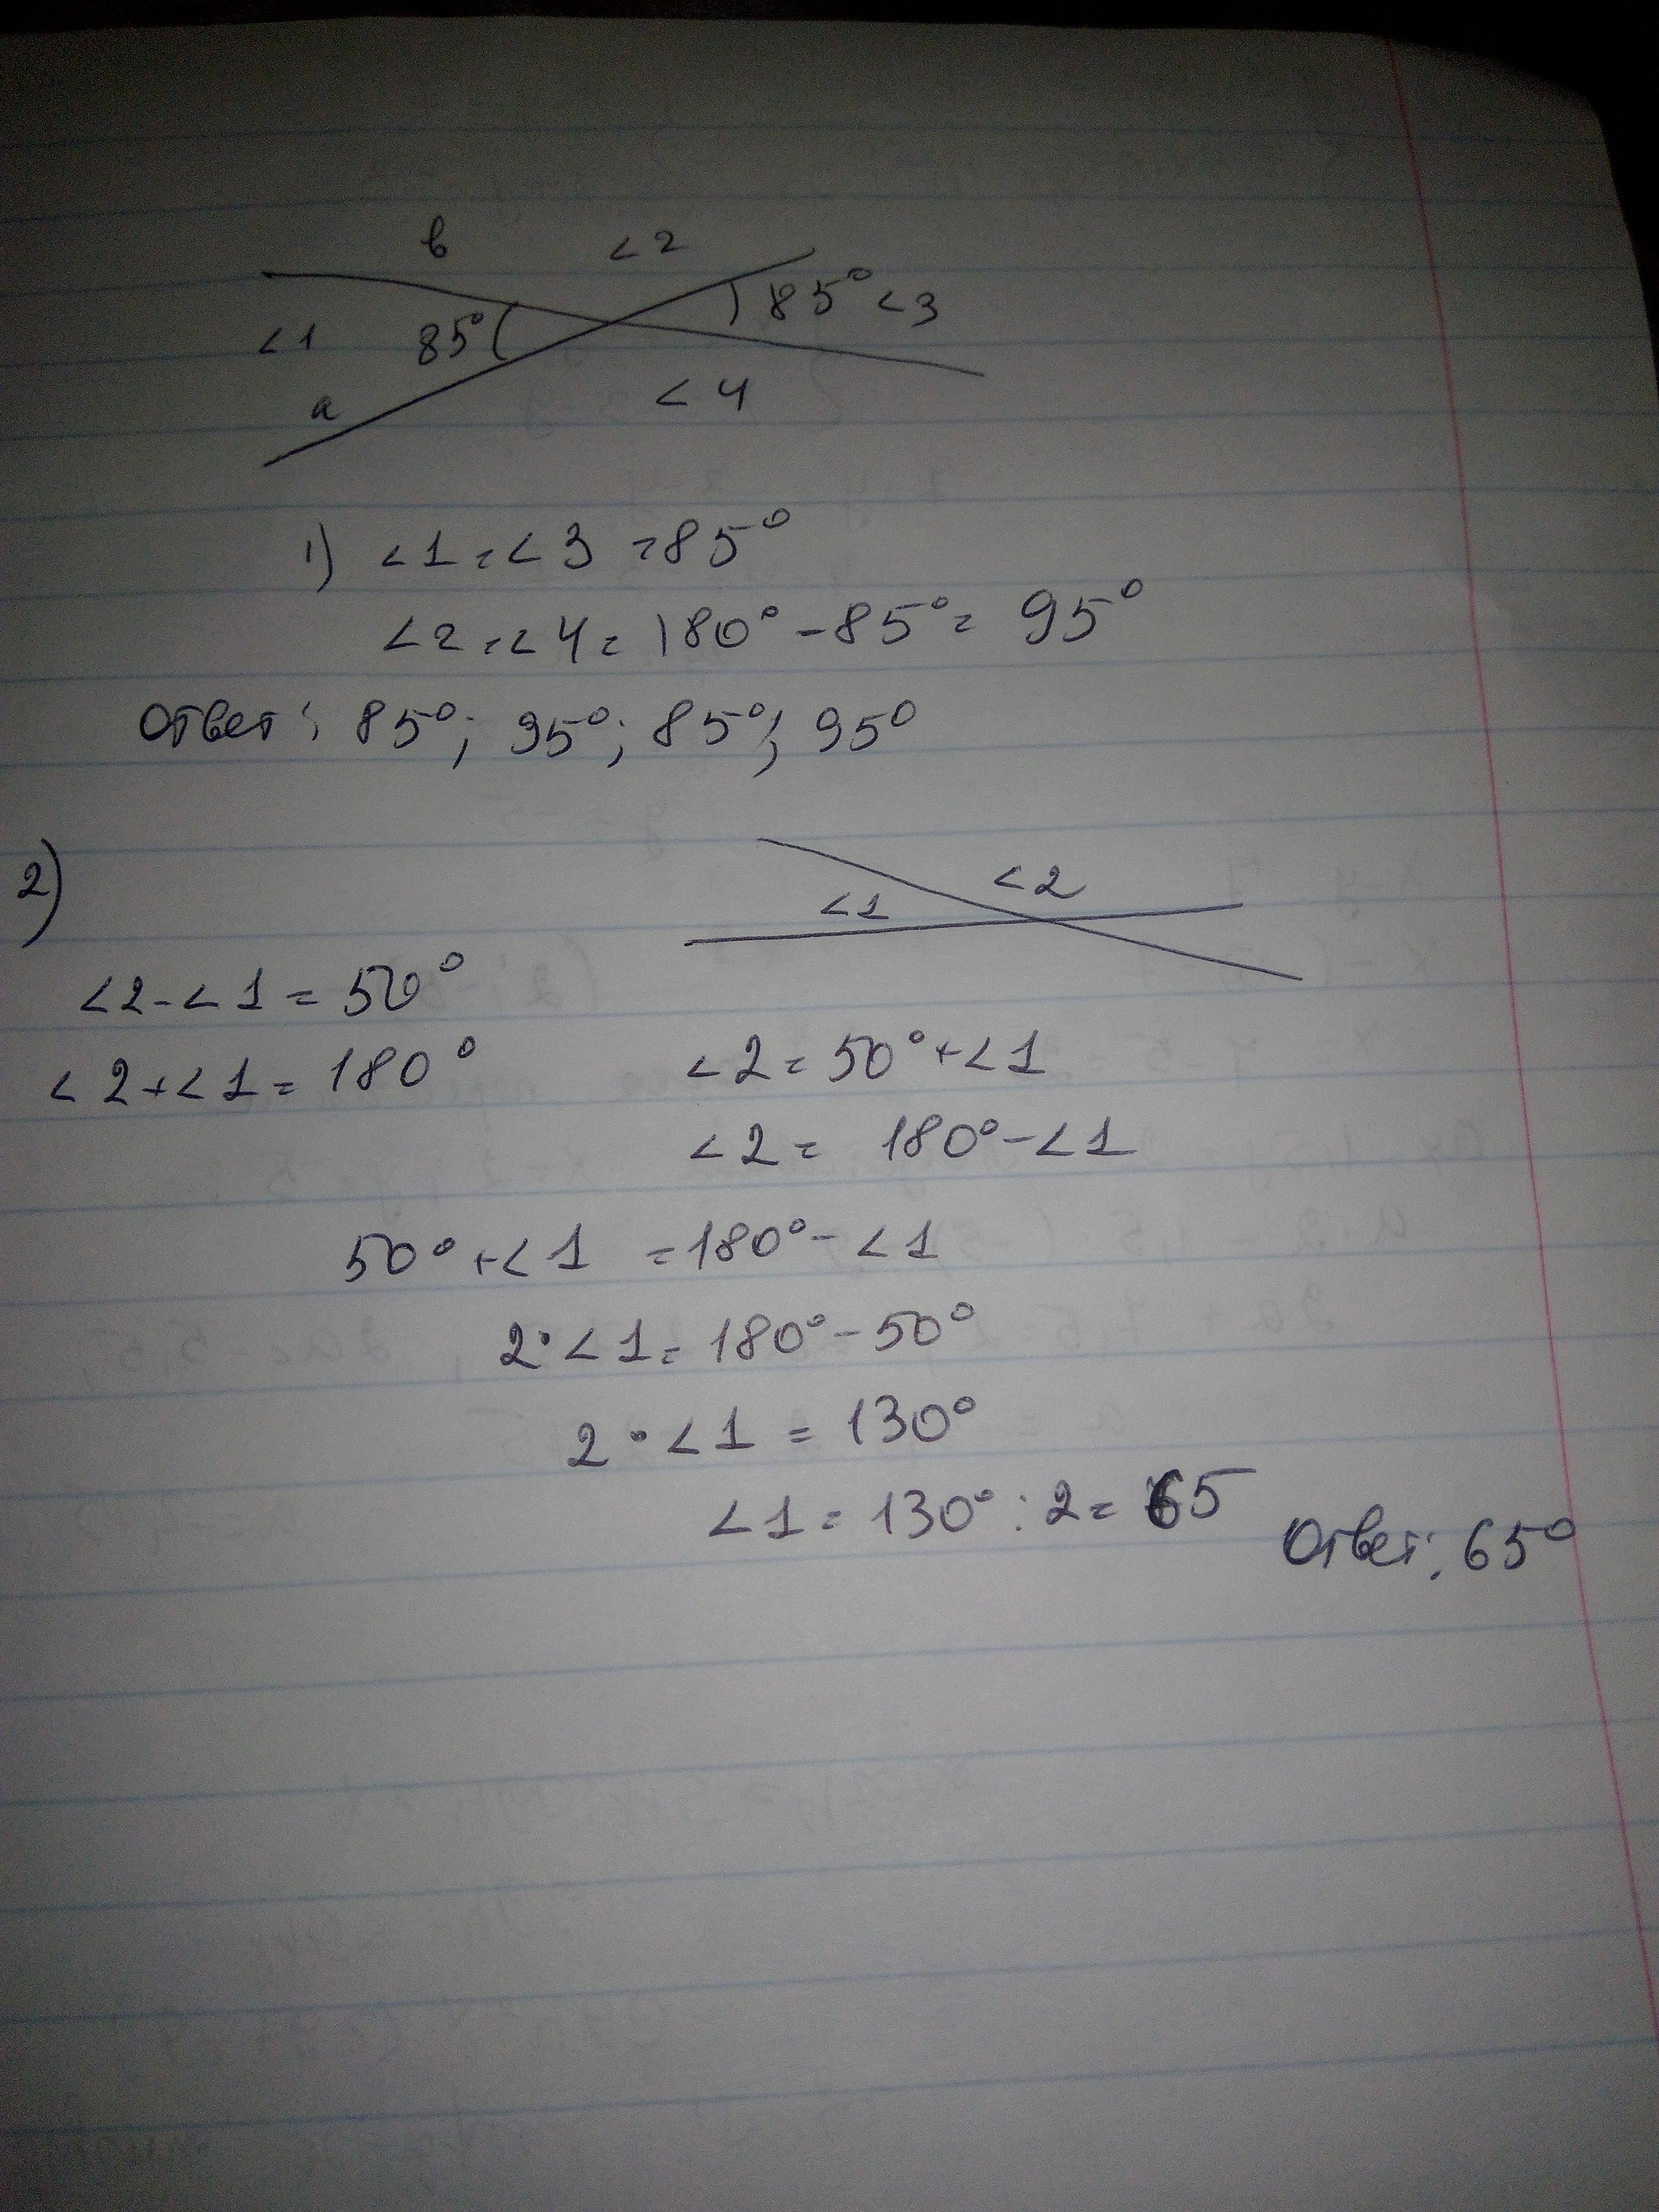 в <2
<1 85° 85° <3
а <4
1) <1 = <3 = 85°
<2 = <4 = 180° - 85° = 95°
Ответ: 85°; 95°; 85°; 95°
2)
<1 <2
<2 - <1 = 50°
<2 + <1 = 180°
<2 = 50° + <1
<2 = 180° - <1
50° + <1 = 180° - <1
2 · <1 = 180° - 50°
2 · <1 = 130°
<1 = 130° : 2 = 65
Ответ: 65°